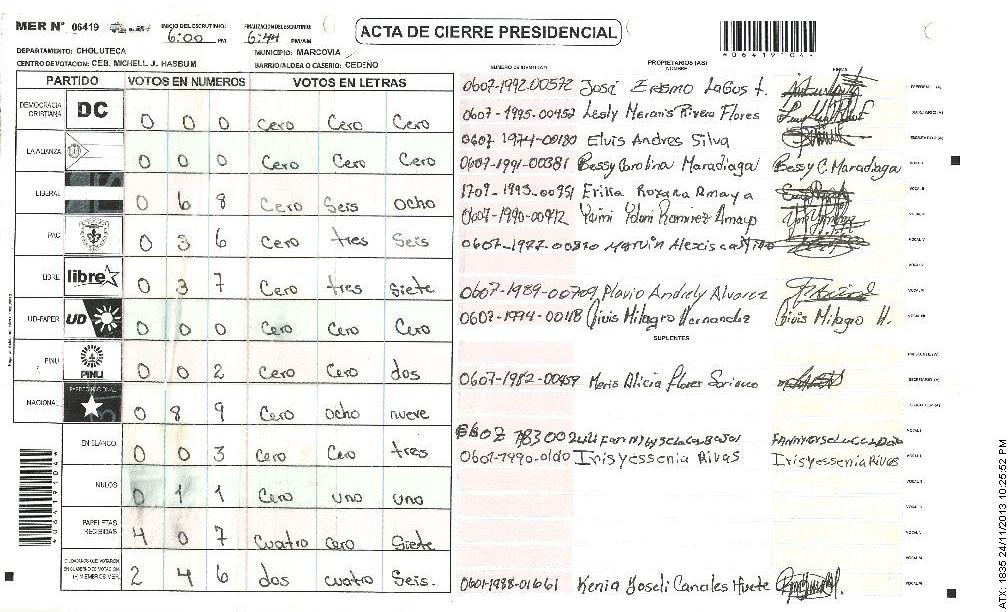 MER Nº 06419 INICIO DEL ESCRUTINIO FINALIZACION DEL ESCRUTINIO
6:00 PM 6:44 PM/AM
ACTA DE CIERRE PRESIDENCIAL
06419104
DEPARTAMENTO: CHOLUTECA MUNICIPIO: MARCOVIA
CENTRO DE VOTACION: CEB. MICHELL J. HASBUM BARRIO/ALDEA O CASERIO: CEDEÑO
PARTIDO VOTOS EN NUMEROS VOTOS EN LETRAS
DEMOCRACIA CRISTIANA DC 0 0 0 Cero Cero Cero
LA ALIANZA 0 0 0 Cero Cero Cero
LIBERAL 0 6 8 Cero Seis ocho
PAC 0 3 6 Cero tres Seis
LIBRE libre 0 3 7 Cero tres Siete
UD-FAPER UD 0 0 0 Cero Cero Cero
PINU PINU 0 0 2 Cero Cero dos
NACIONAL 0 8 9 Cero ocho nueve
EN BLANCO 0 0 3 Cero Cero tres
NULOS 0 1 1 Cero uno uno
PAPELETAS RECIBIDAS 4 0 7 Cuatro cero Siete
2 4 6 dos cuatro Seis.
NUMERO DE IDENTIDAD PROPIETARIOS (AS) NOMBRE FIRMA
0607-1992-00572 José Erasmo Lagos t.
0607-1995-00452 Lesly Merary Rivera Flores
0607 1974-00180 Elvis Andres Silva
0607-1991-00381 Bessy Carolina Maradiaga Bessy C. Maradiaga
1709-1993-00951 Erika Roxana Amaya
0607-1990-00912 Ramirez Amaya
0607-1977-00870 Marvin Alexis
0607-1989-00709 Flavio Andrely Alvarez
0607-1994-00118 Divis Milagro Hernandez Divis Milagro H.
SUPLENTES
0607-1982-00459 Maris Alicia Flores Soriano
0607-1990-0100 Irisyessenia Rivas Irisyessenia Rivas
0601-1988-01661 Kenia Joseli Canales Huete
ATX: 1835 24/11/2013 10:25:52 PM